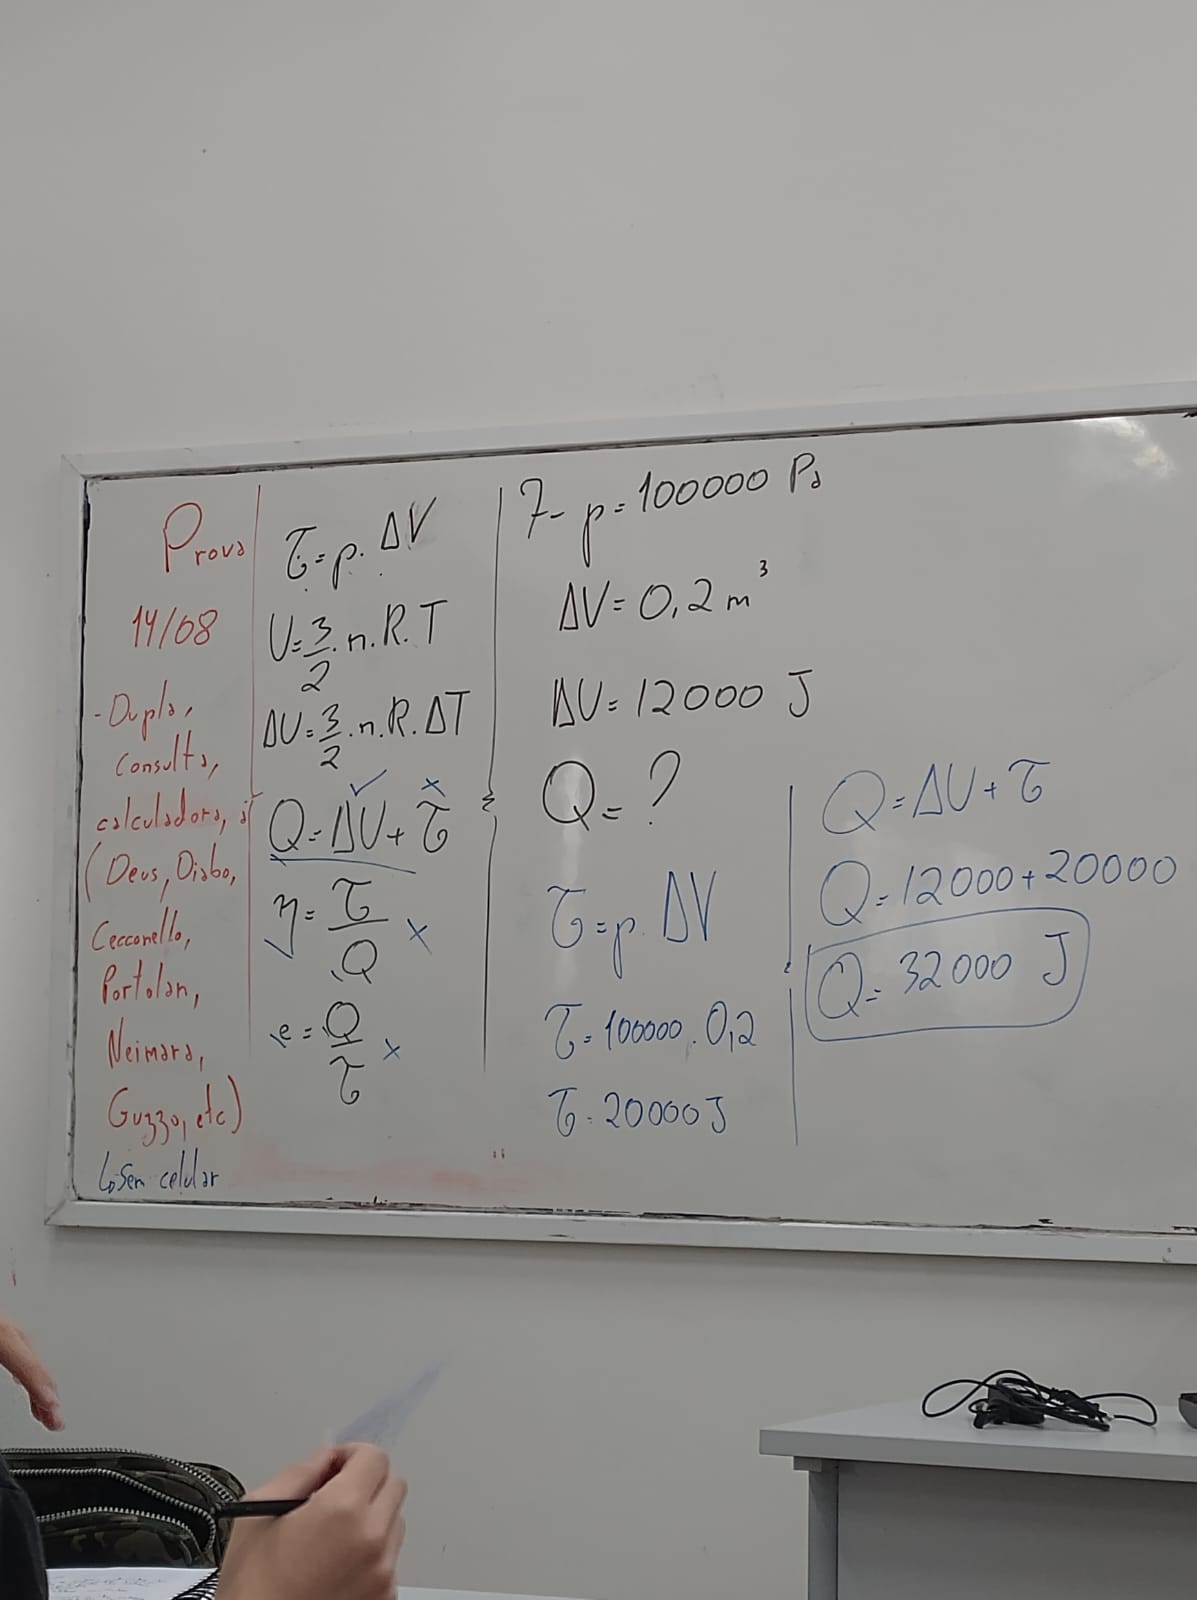 Prova
14/08
- Dupla,
consulta,
calculadora,
(Deus, Diabo,
Cecconello,
Portolan,
Neimara,
Guzzo, etc)
↳ Sem celular
τ = p. ΔV
U = 3/2 . n. R. T
ΔU = 3/2 . n. R. ΔT
✓ x
Q = ΔU + τ
η = τ/Q x
e = Q/τ x
7- p = 100000 Pa
ΔV = 0,2 m³
ΔU = 12000 J
Q = ?
τ = p. ΔV
τ = 100000 . 0,2
τ = 20000 J
Q = ΔU + τ
Q = 12000 + 20000
Q = 32000 J